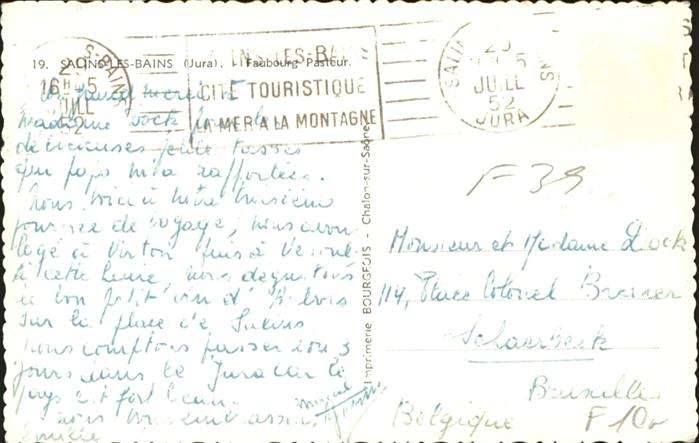 19. SALINS-LES-BAINS (Jura). Faubourg Pasteur.
SALINS-LES-BAINS
CITÉ TOURISTIQUE
LA MER A LA MONTAGNE
25
16H 5
JUILL
52
SALINS
25
5
JUILL
52
JURA
Un merci
Madame Dock pour les
délicieuses petites tasses
que papa m'a rapportées.
Nous voici à notre troisième
journée de voyage, nous avons
logé à Virton puis à Vesoul
à cette heure, nous dégustons
le bon petit vin d'Arbois
sur la place de Salins
nous comptons passer 2 ou 3
jours dans le Jura car le
pays est fort beau
nous
Imprimerie BOURGEOIS - Chalon-sur-Saône
F 39
Monsieur et Madame Dock
114, Place Colonel Bremer
Schaerbeek
Bruxelles
Belgique
F 10